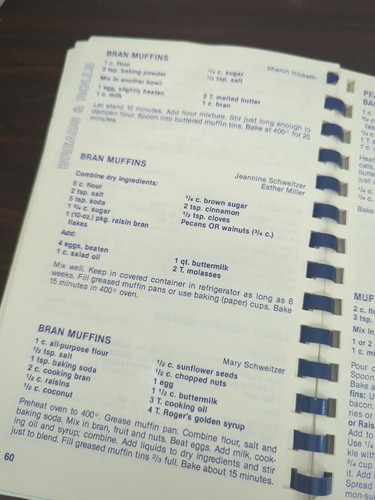 BREADS & ROLLS
BRAN MUFFINS
Sharon Hildreth
1 c. flour
3 tsp. baking powder
Mix in another bowl:
1 egg, slightly beaten
1 c. milk
¼ c. sugar
½ tsp. salt
2 T. melted butter
1 c. bran
Let stand 10 minutes. Add flour mixture. Stir just long enough to
dampen flour. Spoon into buttered muffin tins. Bake at 400° for 25
minutes.
BRAN MUFFINS
Jeannine Schweitzer
Esther Miller
Combine dry ingredients:
5 c. flour
2 tsp. salt
5 tsp. soda
1 ¾ c. sugar
1 (10-oz.) pkg. raisin bran
flakes
¼ c. brown sugar
2 tsp. cinnamon
½ tsp. cloves
Pecans OR walnuts (¾ c.)
Add:
4 eggs, beaten
1 c. salad oil
1 qt. buttermilk
2 T. molasses
Mix well. Keep in covered container in refrigerator as long as 6
weeks. Fill greased muffin pans or use baking (paper) cups. Bake
15 minutes in 400° oven.
BRAN MUFFINS
Mary Schweitzer
1 c. all-purpose flour
½ tsp. salt
1 tsp. baking soda
2 c. cooking bran
½ c. raisins
½ c. coconut
½ c. sunflower seeds
½ c. chopped nuts
1 egg
1 ½ c. buttermilk
3 T. cooking oil
4 T. Roger's golden syrup
Preheat oven to 400°. Grease muffin pan. Combine flour, salt and
baking soda. Mix in bran, fruit and nuts. Beat eggs. Add milk, cook-
ing oil and syrup; combine. Add liquids to dry ingredients and stir
just to blend. Fill greased muffin tins ⅔ full. Bake about 15 minutes.
60
MUF
2 c. fl
3 tsp.
Mix in
1 or 2
1 c. mi
Pour c
Spoon
Bake a
fins: U
bacon.
ries or
or Rais
Add to
Use
kle with
¾ cup
it. Add
Spread
mon-su